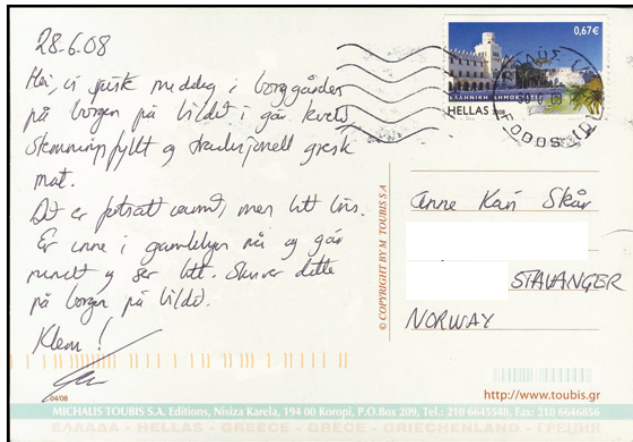 28-6-08
Hei, vi spiste middag i borggården
på borgen på bildet i går kveld,
stemningsfyllt og tradisjonell gresk
mat.
Det er fortsatt varmt, men litt bris.
Er inne i gamlebyen nå og går
rundt og ser litt. Skriver dette
på borgen på bildet.
Klem!
04/08
© COPYRIGHT BY M. TOUBIS S.A
0,67€
ΕΛΛΗΝΙΚΗ ΔΗΜΟΚΡΑΤΙΑ
HELLAS 2008
Anne Kari Skår
STAVANGER
NORWAY
http://www.toubis.gr
MICHALIS TOUBIS S.A. Editions, Nisiza Karela, 194 00 Koropi, P.O.Box 209, Tel.: 210 6645548, Fax: 210 6646856
ΕΛΛΑΔΑ - HELLAS - GREECE - GRÈCE - GRIECHENLAND - ГРЕЦИЯ